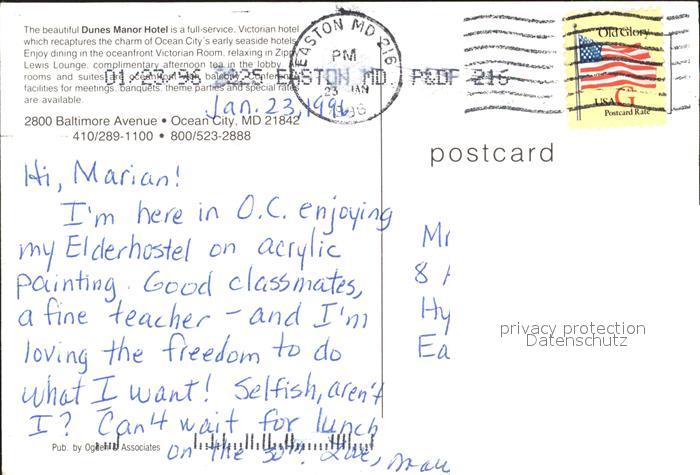 The beautiful Dunes Manor Hotel is a full-service, Victorian hotel
which recaptures the charm of Ocean City's early seaside hotels.
Enjoy dining in the oceanfront Victorian Room, relaxing in Zippy
Lewis Lounge, complimentary afternoon tea in the lobby
rooms and suites oceanfront balcony, conference
facilities for meetings, banquets, theme parties and special rates
are available.
2800 Baltimore Avenue • Ocean City, MD 21842
410/289-1100 • 800/523-2888
EASTON MD 216
PM
23 JAN
1996
EASTON MD P&DF 216
Jan. 23, 1996
Old Glory
USA G
Postcard Rate
postcard
Hi, Marian!
I'm here in O.C. enjoying
my Elderhostel on acrylic
painting. Good classmates,
a fine teacher - and I'm
loving the freedom to do
what I want! Selfish, aren't
I? Can't wait for lunch
on the 30th. Love,
Pub. by Ogden & Associates
8
Hy
Ea
privacy protection
Datenschutz